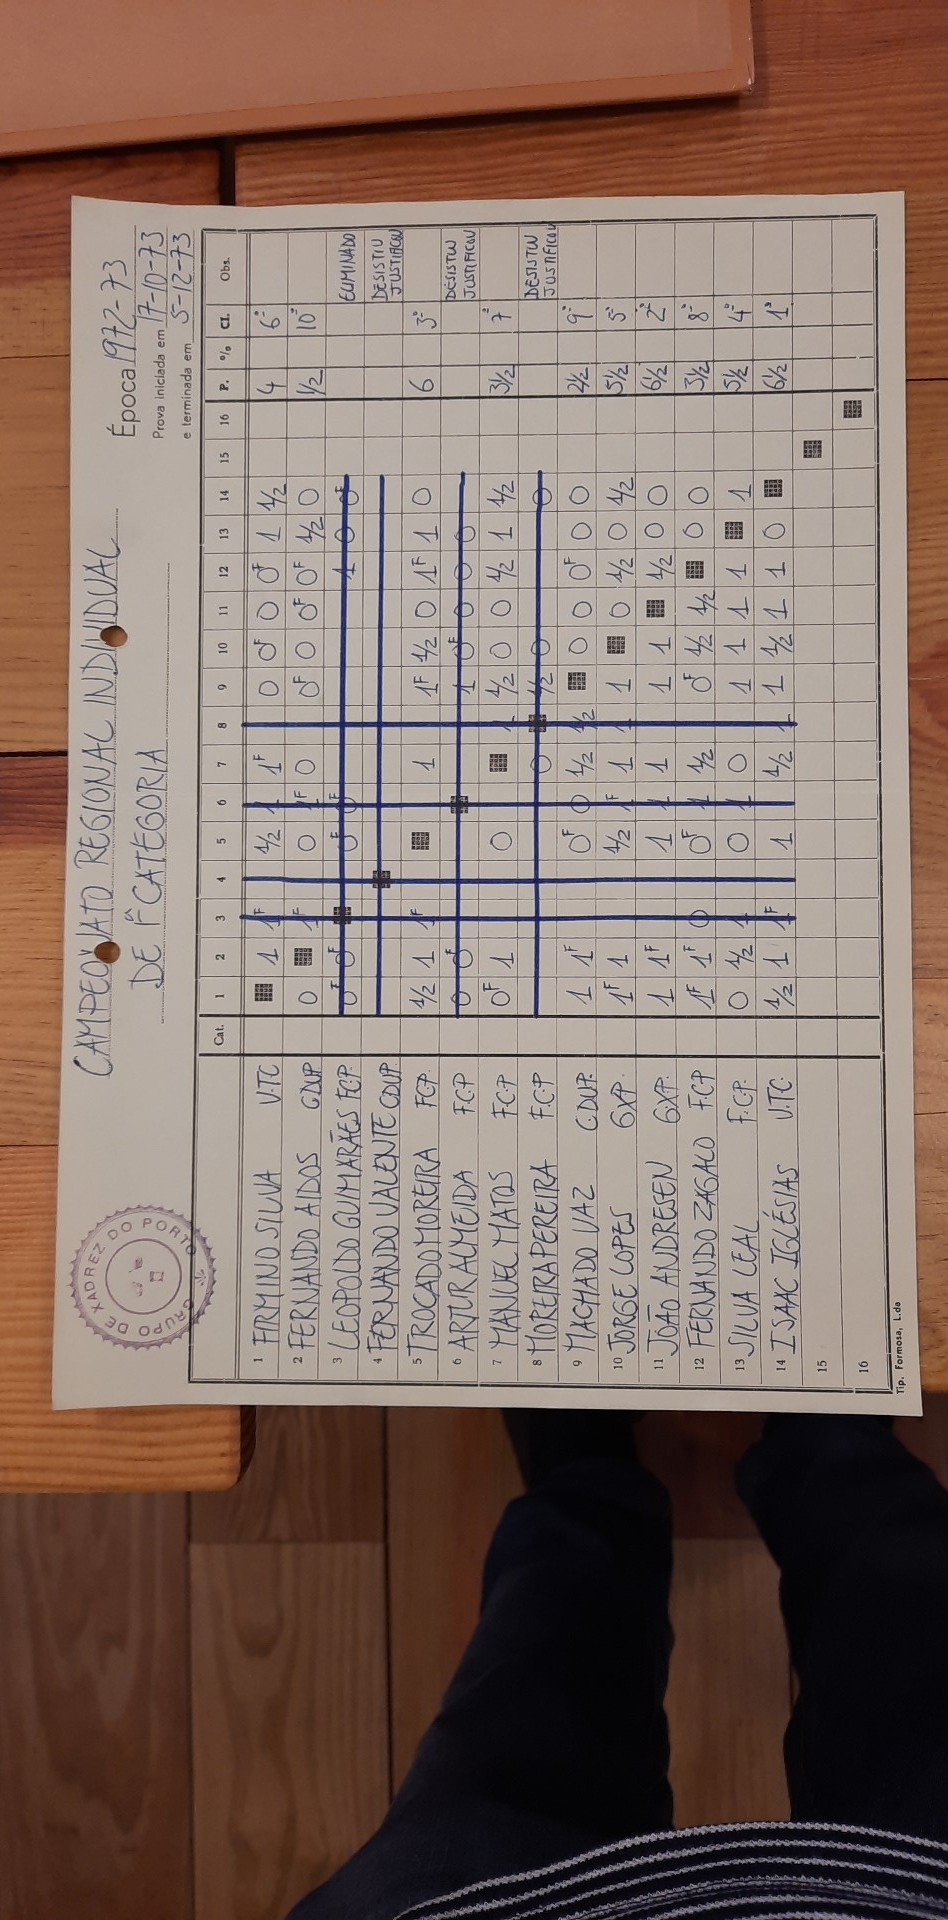 GRUPO DE XADREZ DO PORTO
CAMPEONATO REGIONAL INDIVIDUAL
DE 1ª CATEGORIA
Época 1972-73
Prova iniciada em 17-10-73
e terminada em 5-12-73
Cat. 1 2 3 4 5 6 7 8 9 10 11 12 13 14 15 16 P. % Cl. Obs.
1 FIRMINO SILVA V.TC 1 1F ½ 1 1F 0 0F 0 0F 1 ½ 4 6º
2 FERNANDO AIDOS CDUP 0 1F 0 1F 0 0F 0 0F 0F ½ 0 ½ 10º
3 LEOPOLDO GUIMARÃES FCP. 0F 0F 0F 0F 1 0 0F ELIMINADO
4 FERNANDO VALENTE CDUP. DESISTIU JUSTIFICOU
5 TROCADO MOREIRA FCP. ½ 1 1F 1 1F ½ 0 1F 1 0 6 3º
6 ARTUR ALMEIDA F.C.P 0 0F 1 0F 0 0 0 DESISTIU JUSTIFICOU
7 MANUEL MATOS F.C.P 0F 1 0 1 ½ 0 0 ½ 1 ½ 3½ 7º
8 MOREIRA PEREIRA F.C.P 0 ½ 0 0 DESISTIU JUSTIFICOU
9 MACHADO VAZ C.DUP. 1 1F 0F 0 ½ ½ 0 0 0F 0 0 2½ 9º
10 JORGE LOPES GXP. 1F 1 ½ 1F 1 1 1 0 ½ 0 ½ 5½ 5º
11 JOÃO ANDRESEN GXP. 1 1F 1 1 1 1 1 ½ 0 0 6½ 2º
12 FERNANDO ZAGALO F.C.P 1F 1F 0 0F 1 ½ 0F ½ ½ 0 0 3½ 8º
13 SILVA LEAL F.C.P. 0 ½ 1 0 1 0 1 1 1 1 1 5½ 4º
14 ISAAC IGLÉSIAS V.TC. ½ 1 1F 1 ½ 1 1 ½ 1 1 0 6½ 1º
15
16
Tip. Formosa, L.da